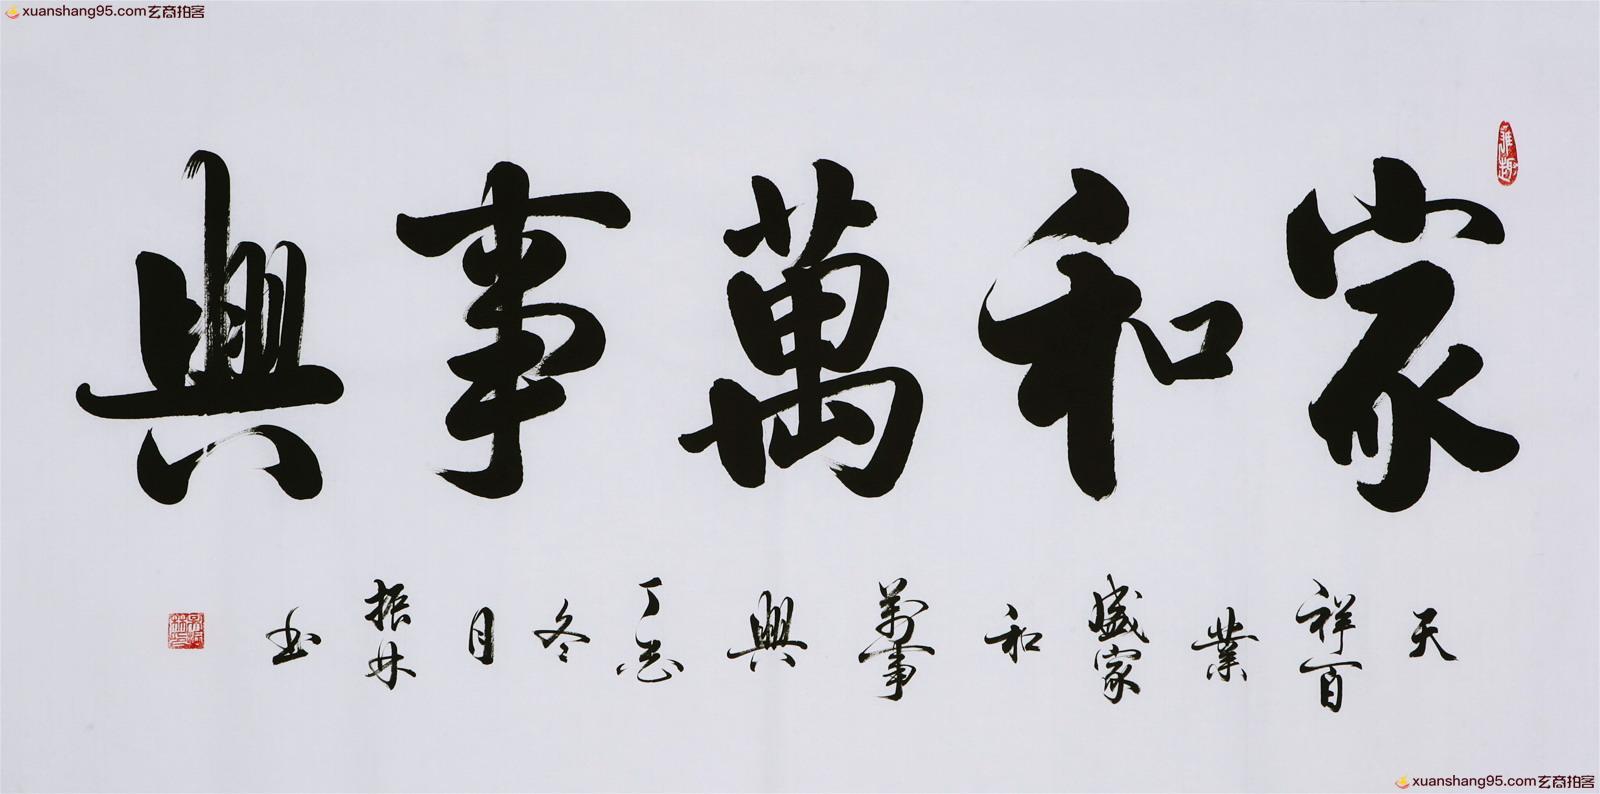 xuanshang95.com玄商拍客
家和萬事興
雅趣
天祥百業盛家和萬事興丁酉冬月振林书
xuanshang95.com玄商拍客